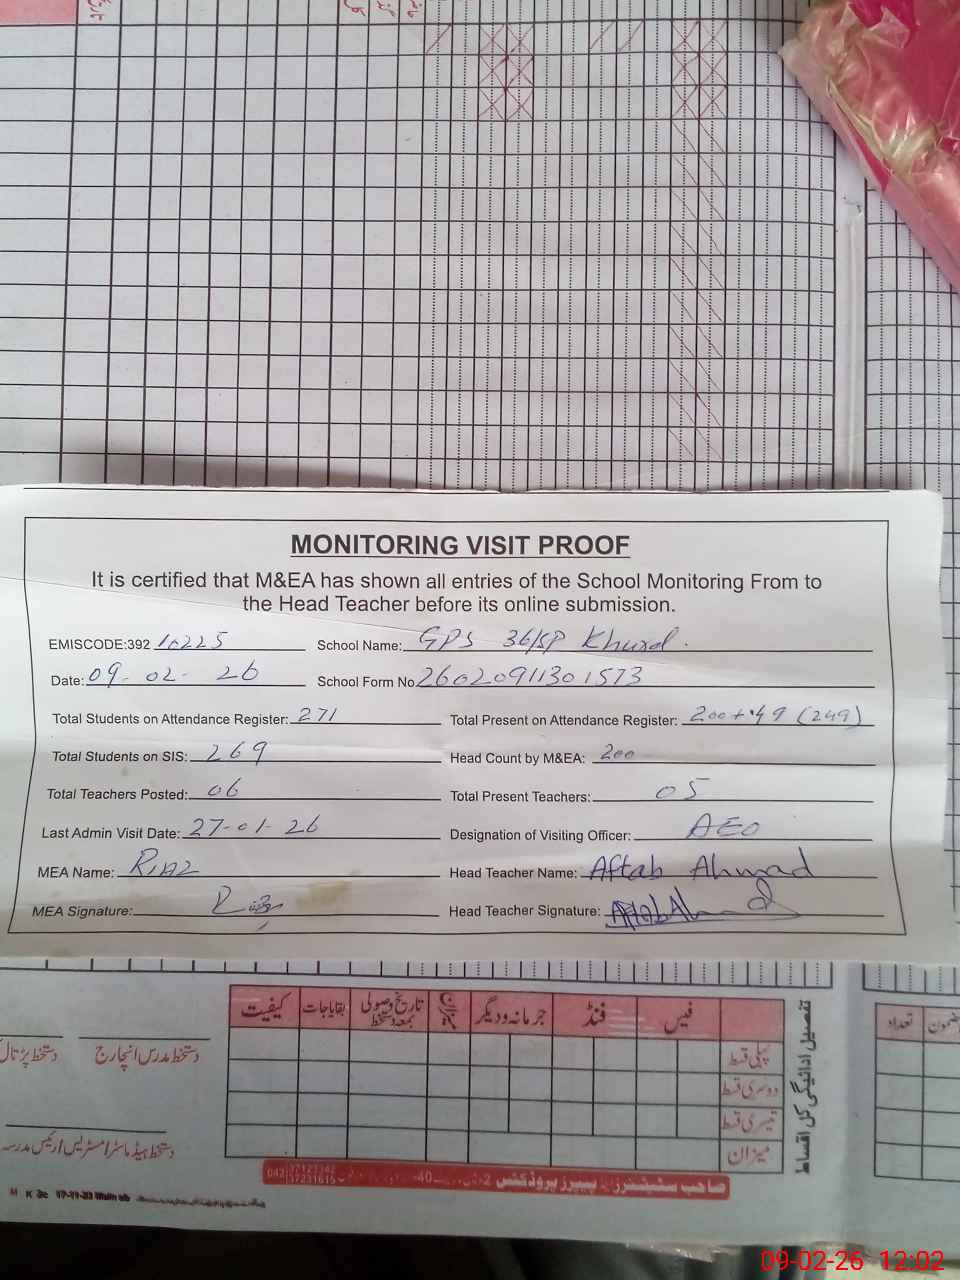 MONITORING VISIT PROOF
It is certified that M&EA has shown all entries of the School Monitoring From to
the Head Teacher before its online submission.
EMISCODE:392 10225 School Name: GPS 36/SP Khurd.
Date: 09-02-26 School Form No 26020911301573
Total Students on Attendance Register: 271 Total Present on Attendance Register: 200+49 (249)
Total Students on SIS: 269 Head Count by M&EA: 200
Total Teachers Posted: 06 Total Present Teachers: 05
Last Admin Visit Date: 27-01-26 Designation of Visiting Officer: AEO
MEA Name: RIAZ Head Teacher Name: Aftab Ahmad
MEA Signature: Head Teacher Signature: Aftab Ahmad
تفصیل ادائیگی کل اقساط
فیس فنڈ جرمانہ و دیگر تاریخ وصولی بمعہ دستخط بقایاجات کیفیت
پہلی قسط
دوسری قسط
تیسری قسط
میزان
دستخط مدرس انچارج دستخط پڑتال
دستخط ہیڈ ماسٹر/مسٹریس/رئیس مدرسہ
تعداد
صاحب سٹیشنرز پیپرز پروڈکشن
042 37123342
37231615
09-02-26 12:02